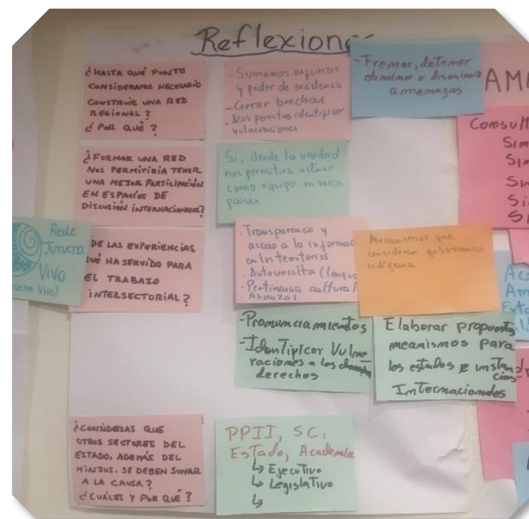 Reflexiones
¿HASTA QUÉ PUNTO
CONSIDERAMOS NECESARIO
CONSTRUIR UNA RED
REGIONAL?
¿POR QUÉ?
- Sumamos esfuerzos
y poder de incidencia
- Cerrar brechas
- Nos permite identificar
vulneraciones
- Frenar, detener
eliminar o disminuir
amenazas
¿FORMAR UNA RED
NOS PERMITIRÍA TENER
UNA MEJOR PARTICIPACIÓN
EN ESPACIOS DE
DISCUSIÓN INTERNACIONALES?
Si, desde la unidad
nos permitira actuar
como equipo en varios
paises
Rede
Juruena
Vivo
DE LAS EXPERIENCIAS
QUÉ HA SERVIDO PARA
EL TRABAJO
INTERSECTORIAL?
- Transparencia y
acceso a la informac
en los territorios
- Autoconsulta
- Pertinencia cultural
- Alianzas
Mecanismos que
consideren gobernanza
indígena
- Pronunciamientos
- Identificar Vulne
raciones a los
derechos
Elaborar propuestas
mecanismos para
los estados e instan
cias
Internacionales
¿CONSIDERAS QUE
OTROS SECTORES DEL
ESTADO, ADEMÁS DEL
MINJUS, SE DEBEN SUMAR
A LA CAUSA?
¿CUÁLES Y POR QUÉ?
PPII, SC,
Estado, Academia
↳ Ejecutivo
↳ Legislativo
↳
AM
Consult